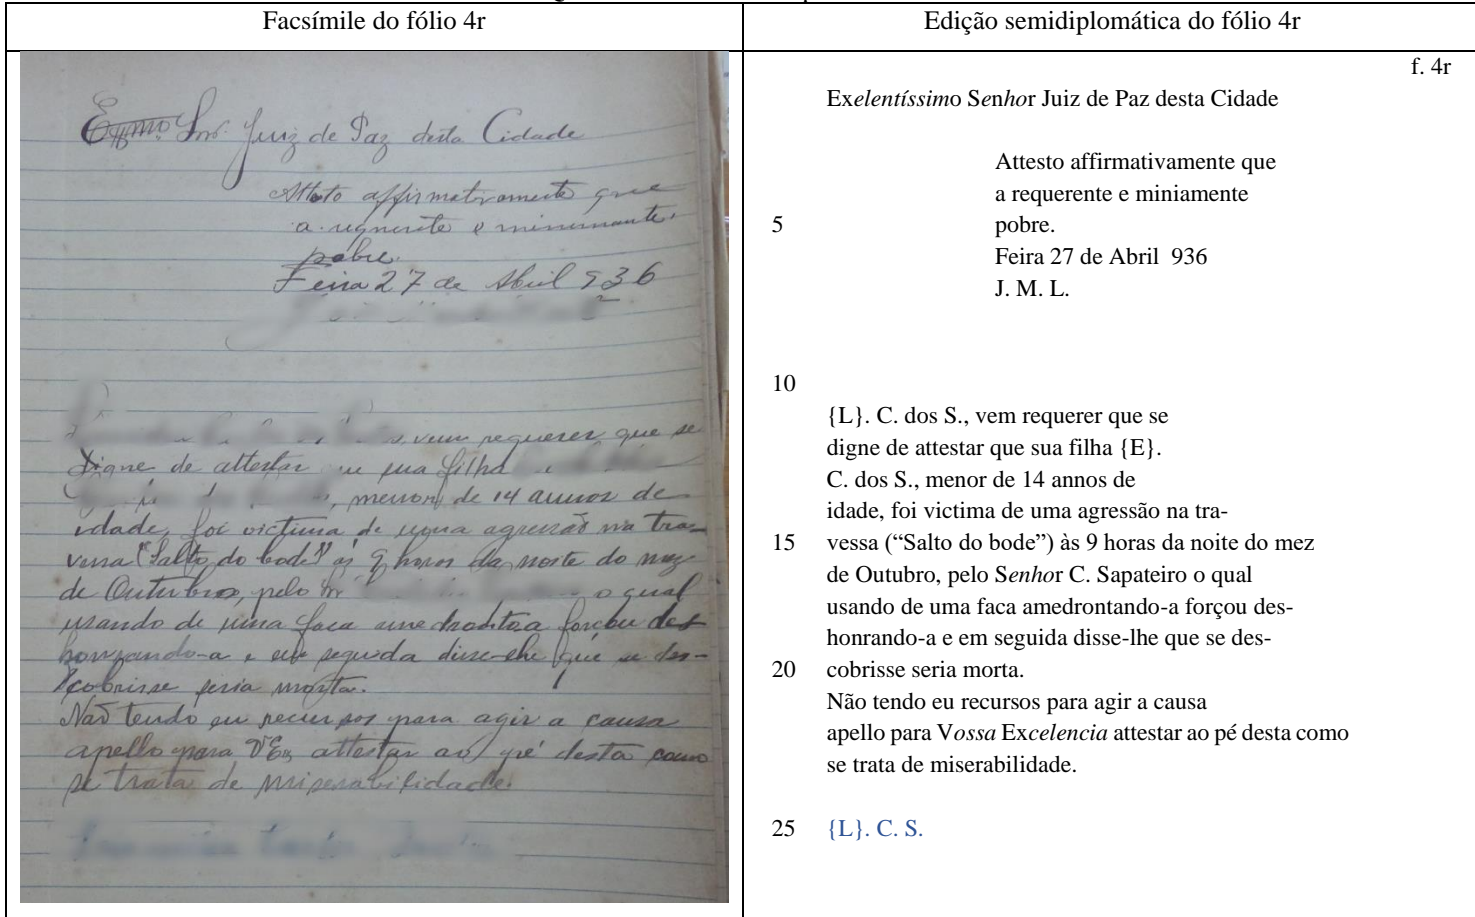 Facsímile do fólio 4r
Exmo. Snr. Juiz de Paz desta Cidade
Attesto affirmativamente que
a requerente e miniamente
pobre.
Feira 27 de Abril 936
, vem requerer que se
digne de attestar que sua filha
, menor de 14 annos de
idade, foi victima de uma agressão na tra-
vessa ("Salto do bode") ás 9 horas da noite do mez
de Outubro, pelo Snr o qual
usando de uma faca amedrontando-a forçou des-
honrando-a e em seguida disse-lhe que se des-
cobrisse seria morta.
Não tendo eu recursos para agir a causa
apello para V Ex attestar ao pé desta como
se trata de miserabilidade.
Edição semidiplomática do fólio 4r
f. 4r
Exelentíssimo Senhor Juiz de Paz desta Cidade
Attesto affirmativamente que
a requerente e miniamente
5 pobre.
Feira 27 de Abril 936
J. M. L.
10
{L}. C. dos S., vem requerer que se
digne de attestar que sua filha {E}.
C. dos S., menor de 14 annos de
idade, foi victima de uma agressão na tra-
15 vessa (“Salto do bode”) às 9 horas da noite do mez
de Outubro, pelo Senhor C. Sapateiro o qual
usando de uma faca amedrontando-a forçou des-
honrando-a e em seguida disse-lhe que se des-
20 cobrisse seria morta.
Não tendo eu recursos para agir a causa
apello para Vossa Excelencia attestar ao pé desta como
se trata de miserabilidade.
25 {L}. C. S.